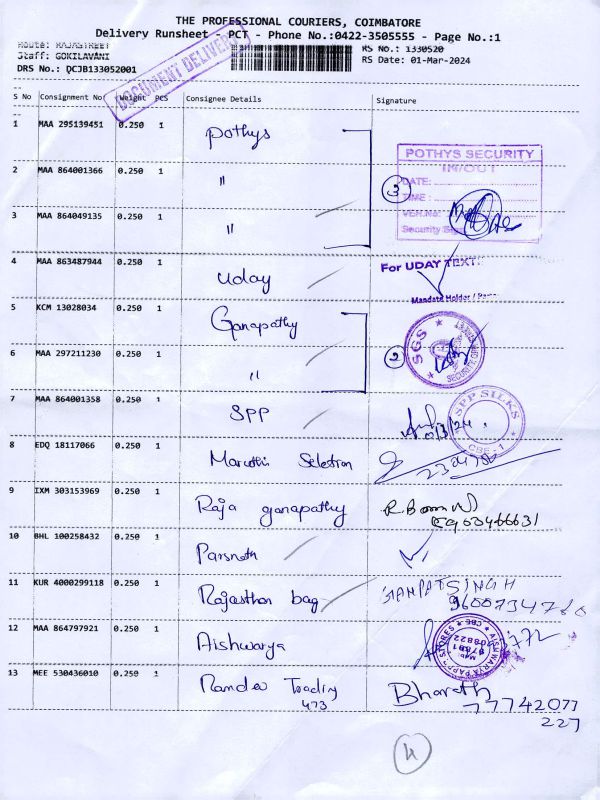 THE PROFESSIONAL COURIERS, COIMBATORE
Delivery Runsheet - PCT - Phone No.:0422-3505555 - Page No.:1
Route: RAJASTREET
RS No.: 1330520
Staff: GOKILAVANI
RS Date: 01-Mar-2024
DRS No.: DCJB133052001
DOCUMENT DELIVERY
S No Consignment No Weight PCS Consignee Details Signature
1 MAA 295139451 0.250 1 Pothys
POTHYS SECURITY
IN/OUT
2 MAA 864001366 0.250 1 "
DATE:
3
TIME:
3 MAA 864049135 0.250 1 "
VEH.No:
Security
4 MAA 863487944 0.250 1 Uday
For UDAY TEXT
Mandate Holder /
5 KCM 13028034 0.250 1 Ganapathy
SGS
6 MAA 297211230 0.250 1 "
2
7 MAA 864001358 0.250 1 SPP
SPP SILKS
CBE - 1
8 EDQ 18117066 0.250 1 Maruthi Seletion
9 IXM 303153969 0.250 1 Raja ganapathy
10 BHL 100258432 0.250 1 Parsnath
11 KUR 4000299118 0.250 1 Rajasthan bag
GANPATSINGH
12 MAA 864797921 0.250 1 Aishwarya
13 MEE 530436010 0.250 1 Ramdev Trading
473
Bharath
77742077
227
4